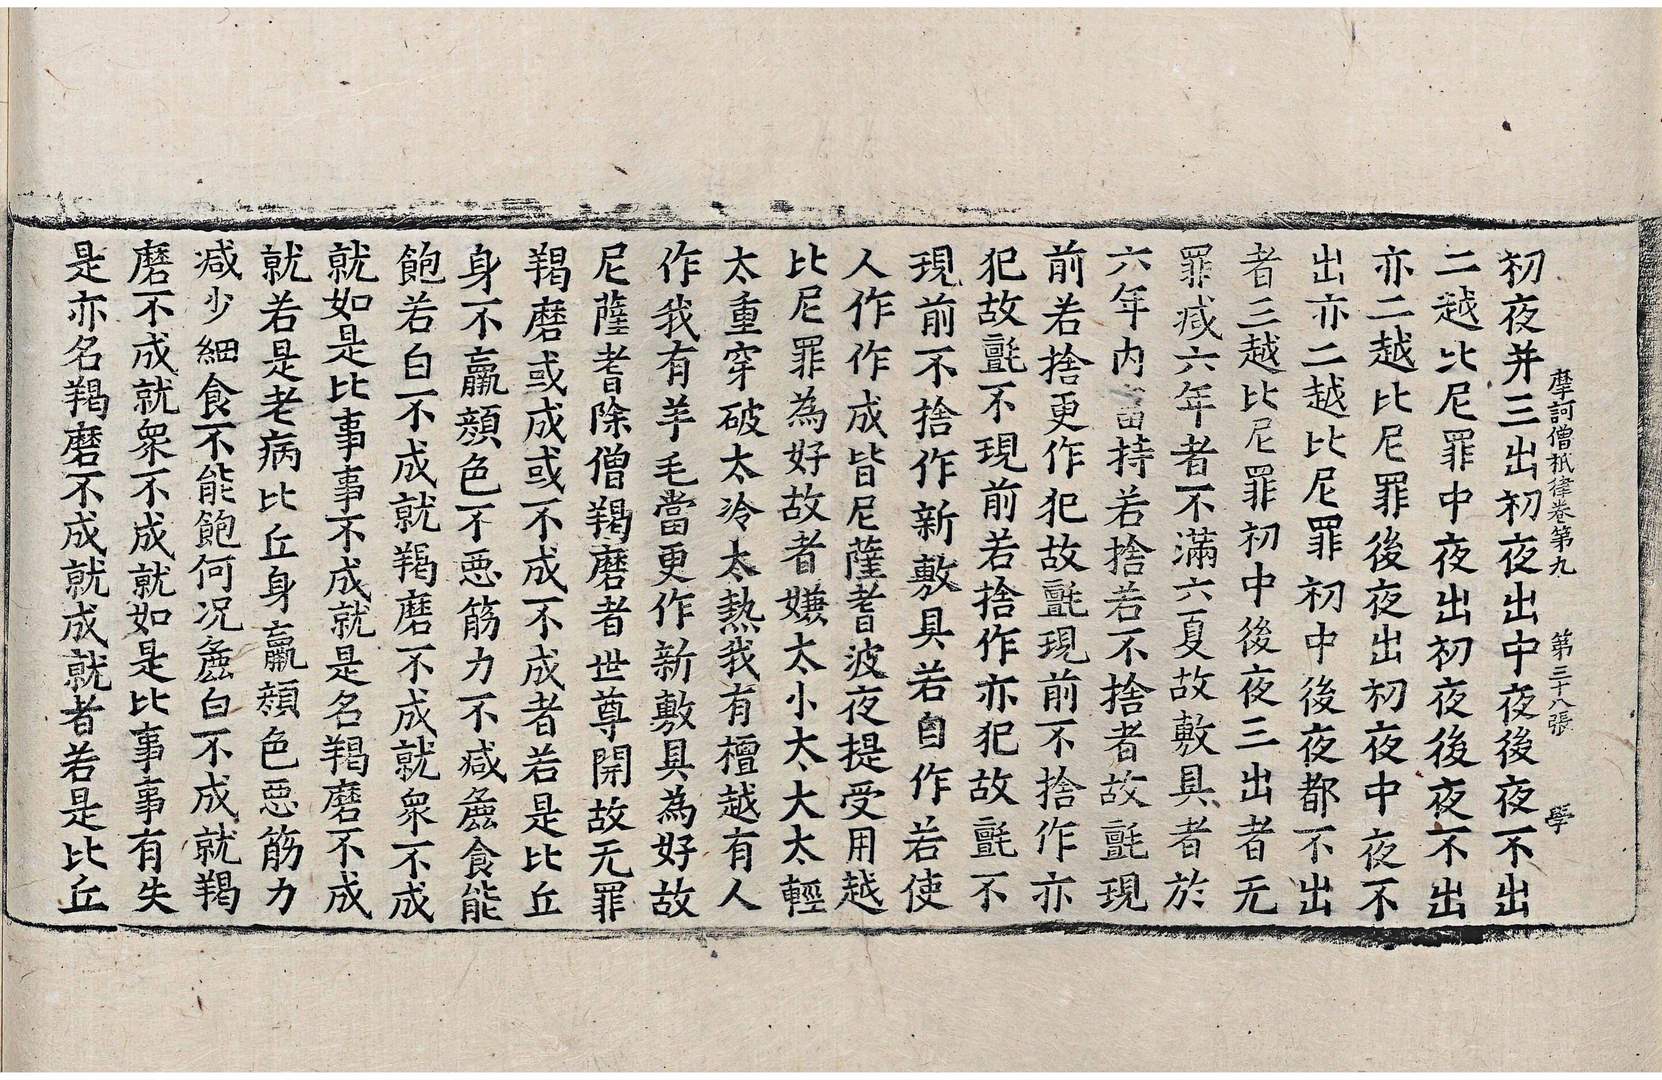 摩訶僧祇律卷第九　第三十八張　學
初夜并三出初夜出中夜後夜不出
二越比尼罪中夜出初夜後夜不出
亦二越比尼罪後夜出初夜中夜不
出亦二越比尼罪初中後夜都不出
者三越比尼罪初中後夜三出者无
罪减六年者不滿六夏故敷具者於
六年內當持若捨若不捨者故氈現
前若捨更作犯故氈現前不捨作亦
犯故氈不現前若捨作亦犯故氈不
現前不捨作新敷具若自作若使
人作作成皆尼薩耆波夜提受用越
比尼罪為好故者嫌太小太大太輕
太重穿破太冷太熱我有檀越有人
作我有羊毛當更作新敷具為好故
尼薩耆除僧羯磨者世尊開故无罪
羯磨或成或不成不成者若是比丘
身不羸顏色不惡筋力不减麁食能
飽若白不成就羯磨不成就衆不成
就如是比事事不成就是名羯磨不成
就若是老病比丘身羸顏色惡筋力
减少細食不能飽何况麁白不成就羯
磨不成就衆不成就如是比事事有失
是亦名羯磨不成就成就者若是比丘